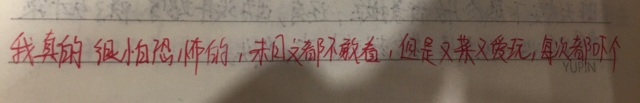 我真的很怕恐怖的，未日文都不敢看，但是又菜又爱玩，每次都吓个
YUPIN